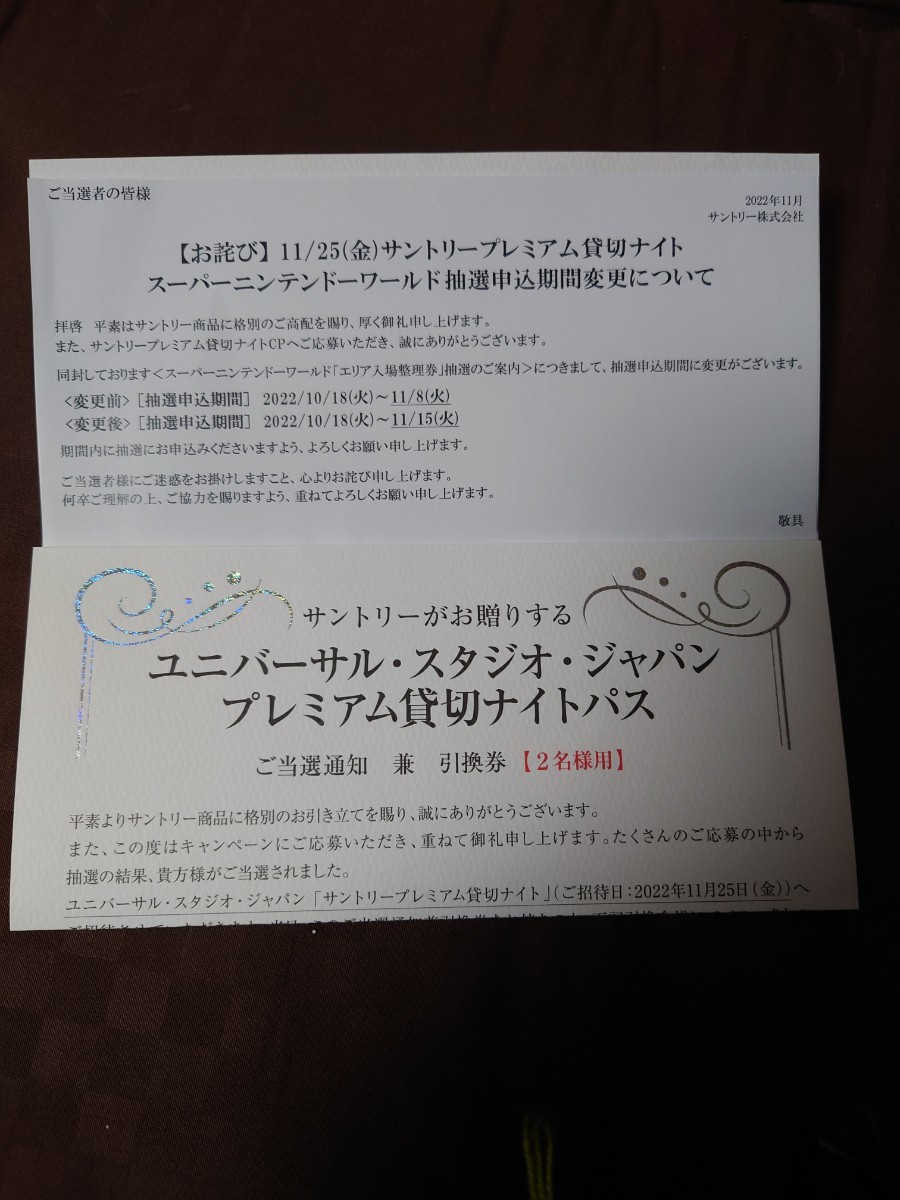 ご当選者の皆様
2022年11月
サントリー株式会社
【お詫び】11/25(金)サントリープレミアム貸切ナイト
スーパーニンテンドーワールド抽選申込期間変更について
拝啓　平素はサントリー商品に格別のご高配を賜り、厚く御礼申し上げます。
また、サントリープレミアム貸切ナイトCPへご応募いただき、誠にありがとうございます。
同封しております＜スーパーニンテンドーワールド「エリア入場整理券」抽選のご案内＞につきまして、抽選申込期間に変更がございます。
＜変更前＞［抽選申込期間］ 2022/10/18(火)～11/8(火)
＜変更後＞［抽選申込期間］ 2022/10/18(火)～11/15(火)
期間内に抽選にお申込みくださいますよう、よろしくお願い申し上げます。
ご当選者様にご迷惑をお掛けしますこと、心よりお詫び申し上げます。
何卒ご理解の上、ご協力を賜りますよう、重ねてよろしくお願い申し上げます。
敬具
サントリーがお贈りする
ユニバーサル・スタジオ・ジャパン
プレミアム貸切ナイトパス
ご当選通知　兼　引換券【２名様用】
平素よりサントリー商品に格別のお引き立てを賜り、誠にありがとうございます。
また、この度はキャンペーンにご応募いただき、重ねて御礼申し上げます。たくさんのご応募の中から
抽選の結果、貴方様がご当選されました。
ユニバーサル・スタジオ・ジャパン「サントリープレミアム貸切ナイト」(ご招待日：2022年11月25日(金))へ